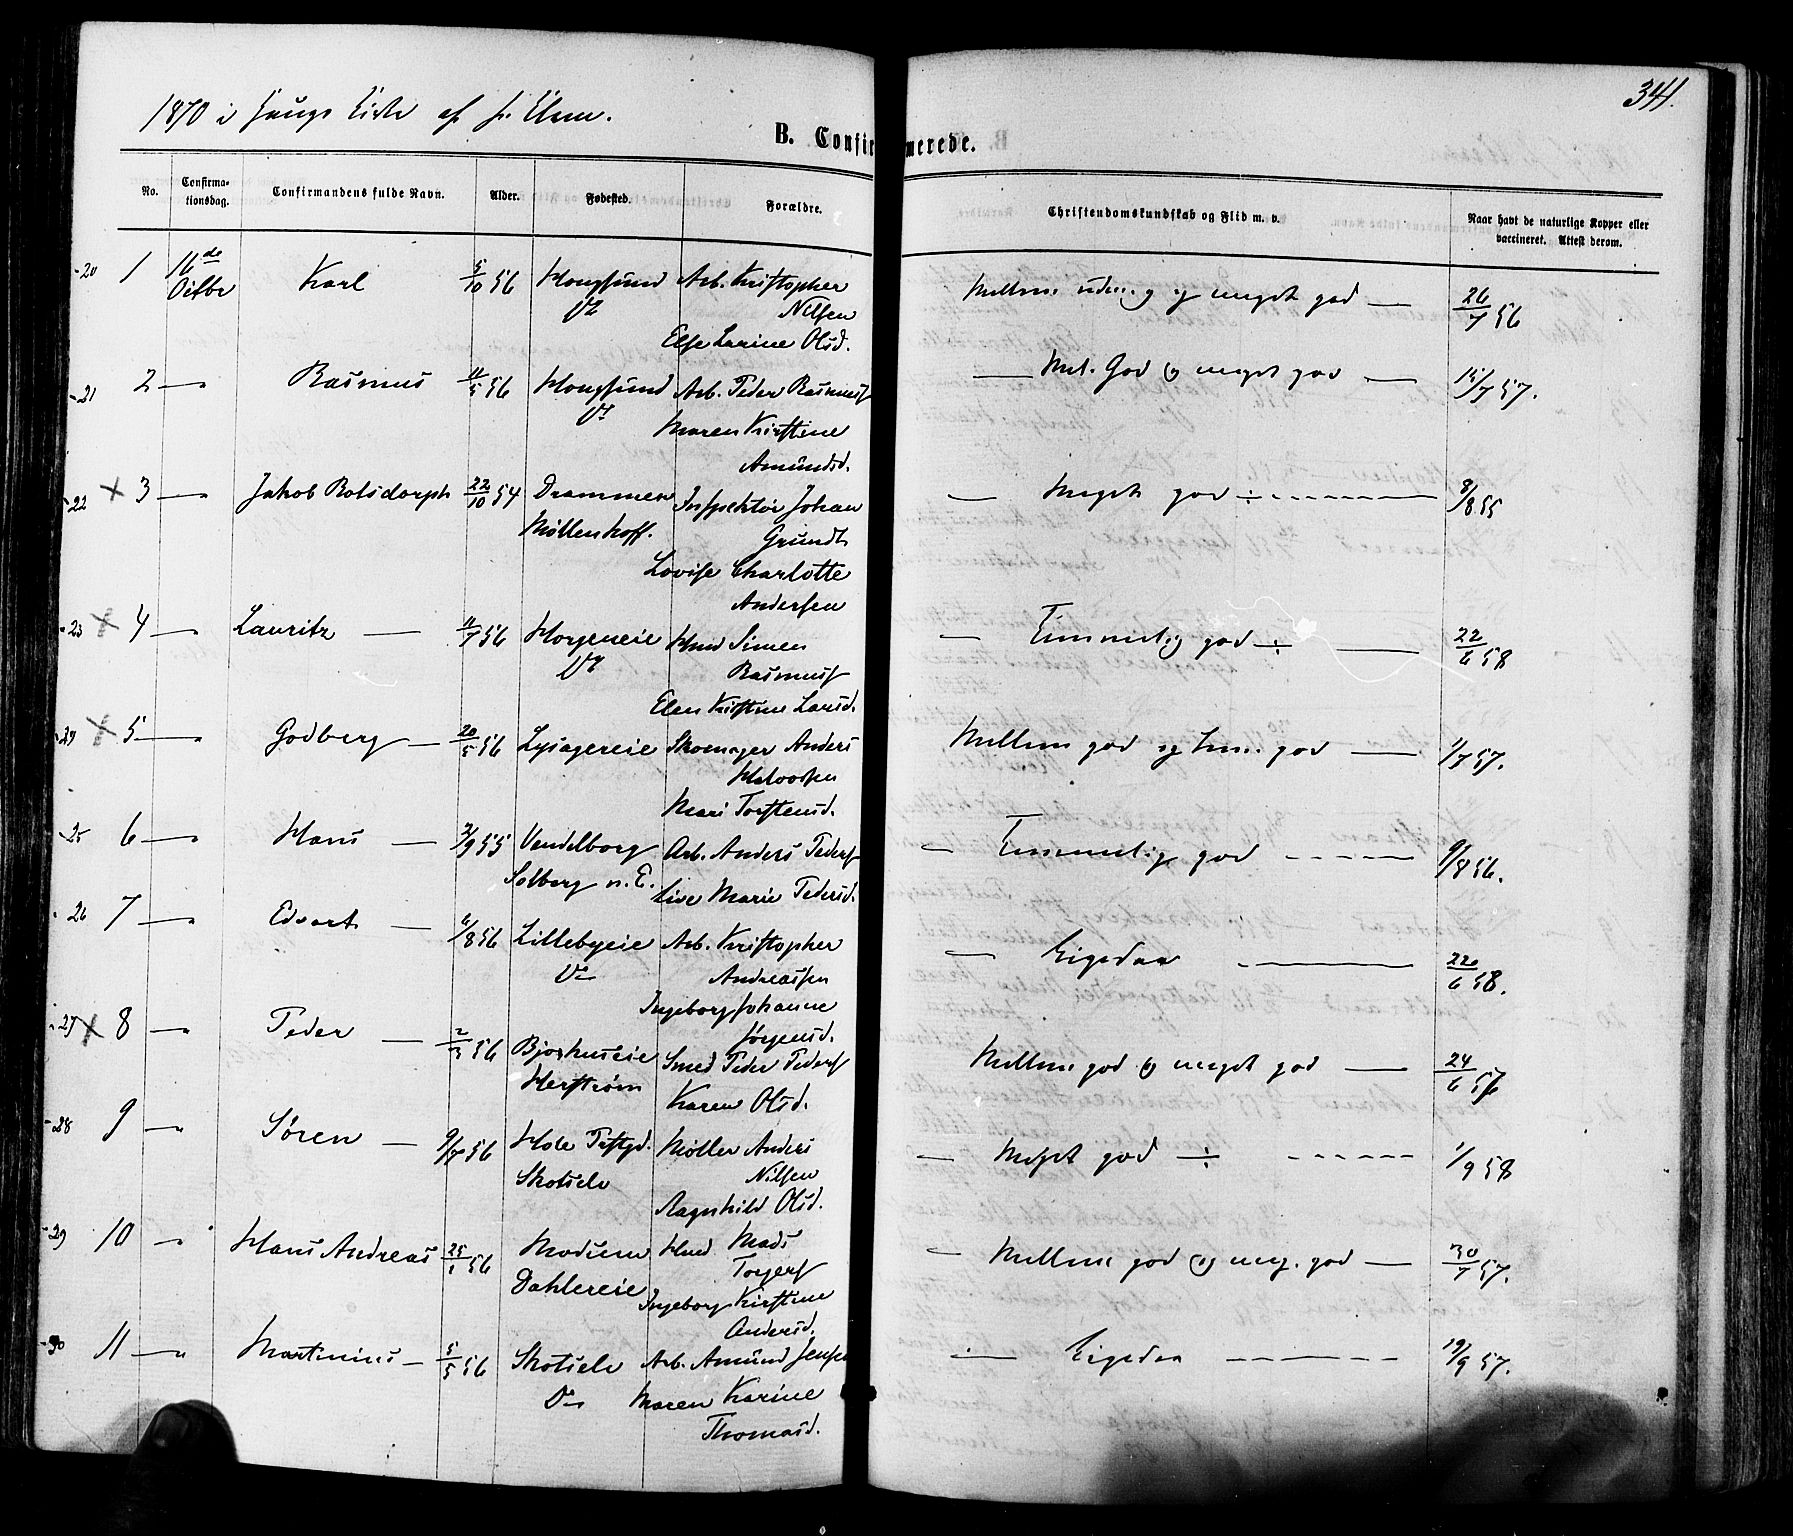 1870 i Haugs Kirke af
341.
B. Confirmerede.
No.
Confirmationsdag.
Confirmandens fulde Navn.
Alder.
Fødested.
Forældre.
Christendomskundskab og Flid m. v.
Naar havt de naturlige Kopper eller vaccineret. Attest derom.
-20 1 16de Octbr Karl 5/10 56 Hougsund Arb. Kristopher Nilsen
Else Larine Olsd.
og meget god — 26/7 56
-21 2 —"— Rasmus 11/5 56 Hougsund Arb. Peder Rasmusf
Maren Kirstine
Amundsd.
— Mel. God og meget god — 15/7 57.
-22 × 3 —"— Jakob Rolsdorph 22/10 54 Drammen Inspektør Johan
Møllenhoff. Grundt
Lovise Charlotte
Andersen
— Meget god ÷ 8/8 55
-23 × 4 —"— Lauritz — 11/7 56 Horgeneie Hmd Simen
Rasmusf
Elen Kirstine Larsd.
— Temmelig god ÷ — 22/6 58
-24 × 5 —"— Godberg — 20/5 56 Lysagereie Skomager Anders
Halvorsen
Mari Torstensd.
Mellem god og tem. god — 1/7 57.
-25 6 —"— Hans — 2/9 55 Vendelborg Arb. Anders Pedersf
Solberg n. E. Live Marie Pedersd.
— Temmelig god 9/8 56.
-26 7 —"— Edvart — 6/8 56 Lillebyeie Arb. Kristopher
Andreassen
Ingeborg Johanne
Jørgensd.
— Ligedan — 22/6 58.
-27 × 8 —"— Peder — 2/3 56 Bjørkuseie Smed Peder Pedersf
Herstrøm Karen Olsd.
Mellem god og meget god — 24/6 57
-28 9 —"— Søren — 9/7 56 Hole Prstgd. Møller Anders
Skotselv Nilsen
Ragnhild Olsd.
— Meget god ÷ 1/9 58
-29 10 —"— Hans Andreas 25/1 56 Modum Hmd. Mads
Dahlereie Torgersf
Ingeborg Kirstine
Andersd.
— Mellem god og meg. god — 30/7 57.
-30 11 —"— Martinius — 5/5 56 Skotselv Arb. Amund Jensen
Maren Karine
Thomasd.
— Ligedan 19/9 57.